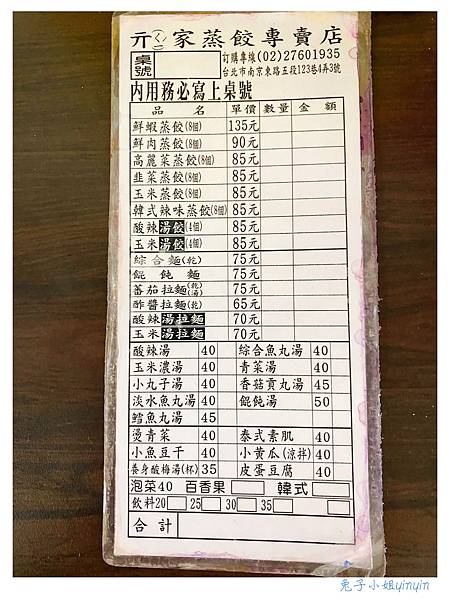 亓ㄑㄧˊ家蒸餃專賣店
桌號
訂購專線(02)27601935
台北市南京東路五段123巷4弄3號
內用務必寫上桌號
品 名 單價 數量 金 額
鮮蝦蒸餃(8個) 135元
鮮肉蒸餃(8個) 90元
高麗菜蒸餃(8個) 85元
韭菜蒸餃(8個) 85元
玉米蒸餃(8個) 85元
韓式辣味蒸餃(8個) 85元
酸辣湯餃(4個) 85元
玉米湯餃(4個) 85元
綜合麵(乾) 75元
餛飩麵 75元
蕃茄拉麵(乾湯) 75元
酢醬拉麵(乾) 65元
酸辣湯拉麵 70元
玉米湯拉麵 70元
酸辣湯 40 綜合魚丸湯 40
玉米濃湯 40 青菜湯 40
小丸子湯 40 香菇貢丸湯 45
淡水魚丸湯 40 餛飩湯 50
鱈魚丸湯 45
燙青菜 40 泰式素肌 40
小魚豆干 40 小黃瓜(涼拌) 40
養身酸梅湯(杯) 35 皮蛋豆腐 40
泡菜40 百香果 韓式
飲料20 25 30 35
合計
兔子小姐yinyin